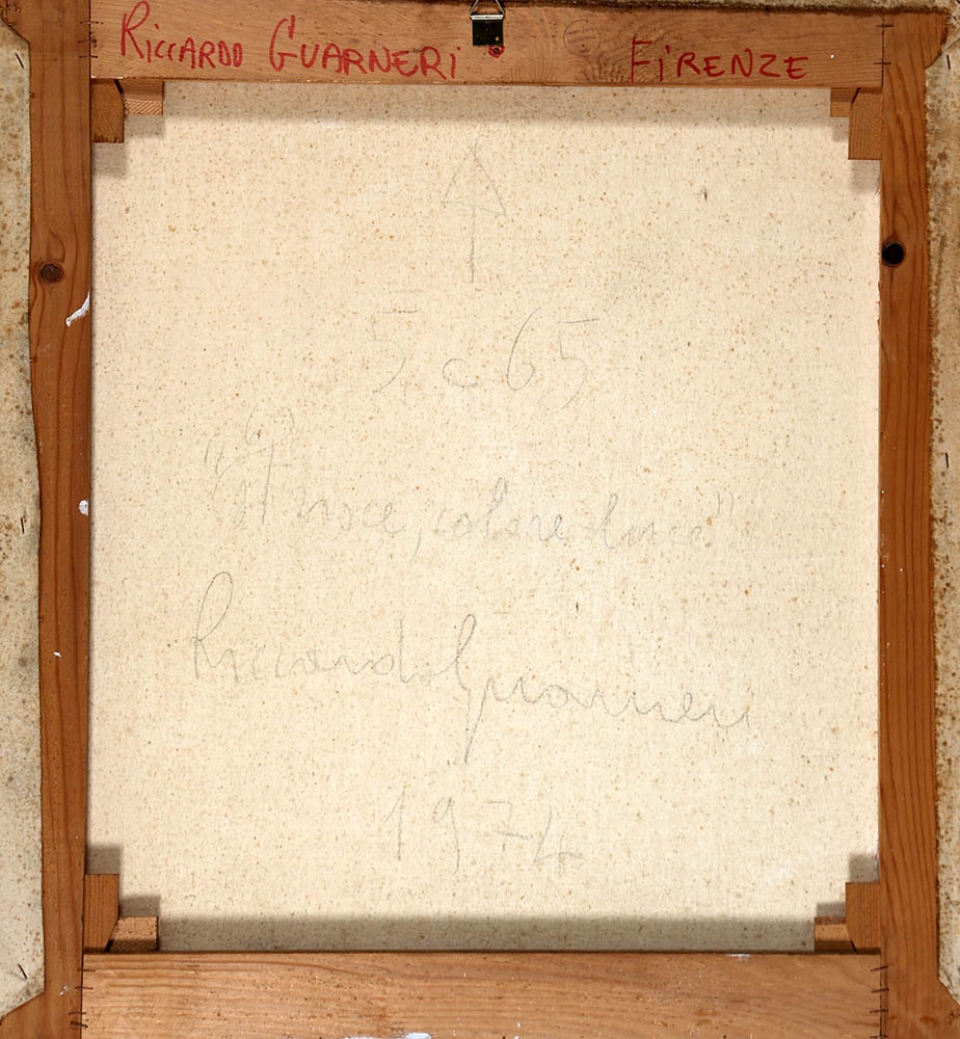 RiCCARDO GUARNERi FiRENZE
5 c 65
colore luce"
Riccardo Guarneri
1974